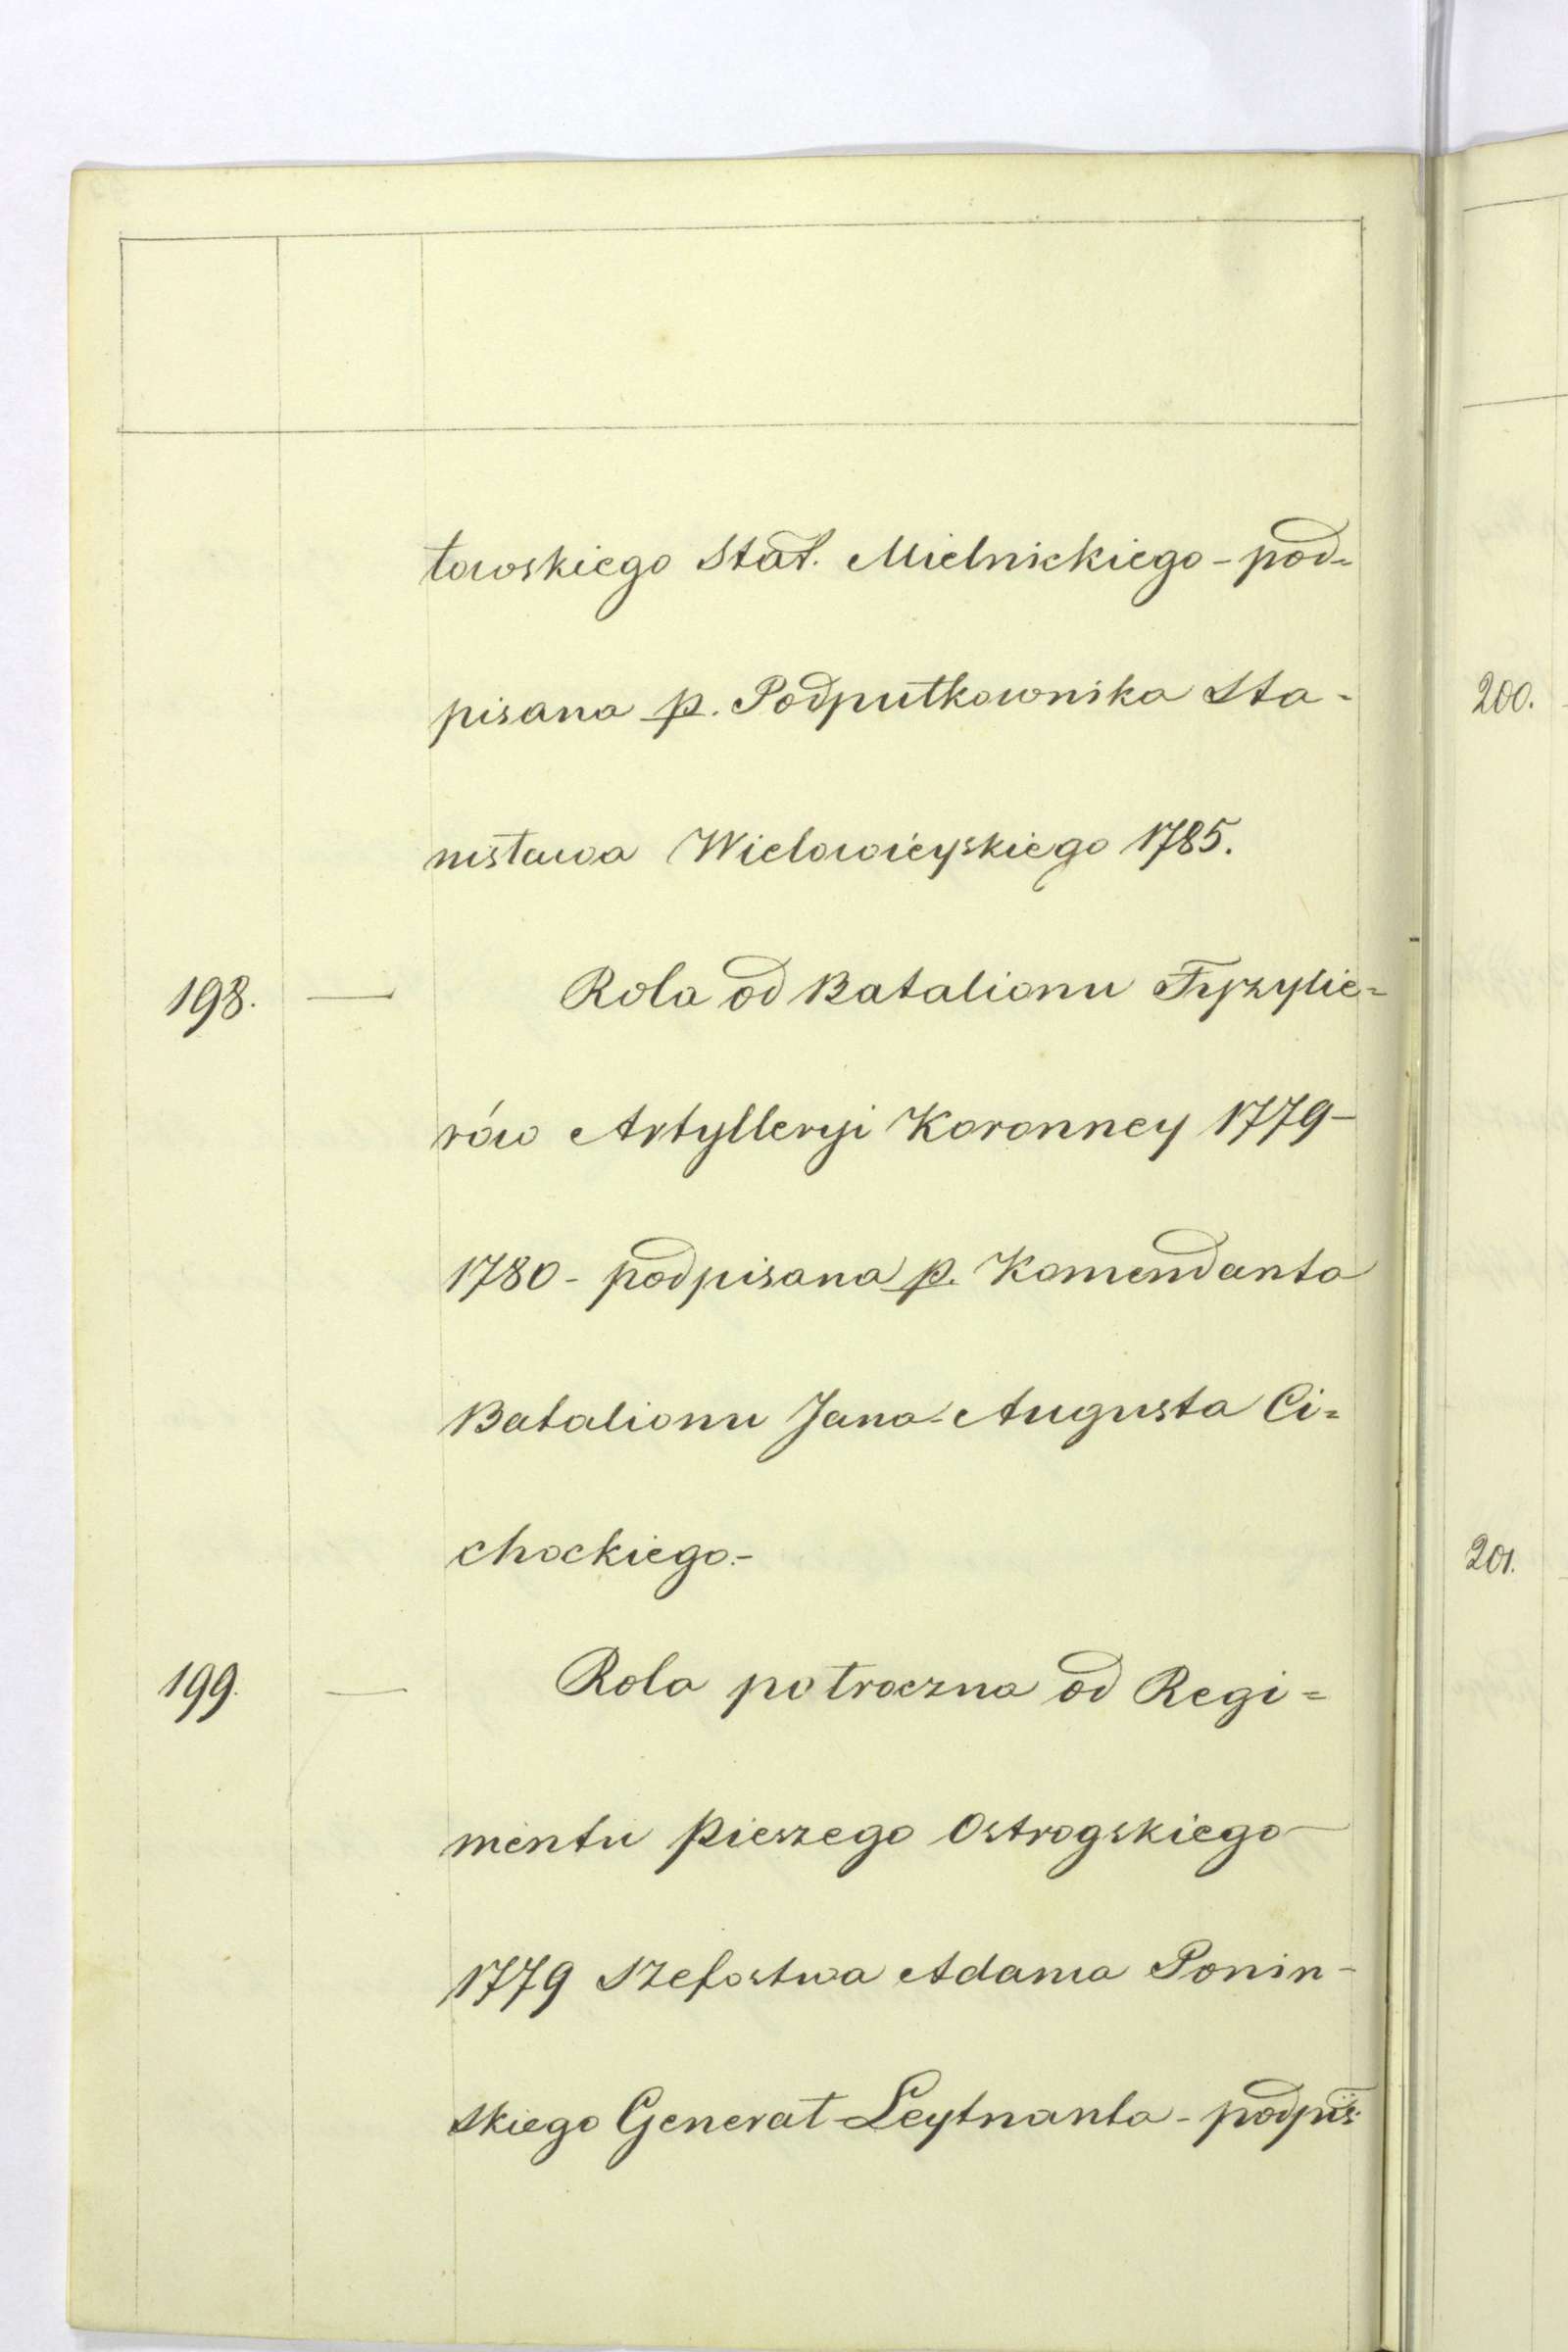 towskiego Stat. Mielnickiego - pod=
pisana p. Podpułkownika Sta-
nisława Wielowiéyskiego 1785.
198. — Rola od Batalionu Fyzylie=
rów Artylleryi Koronney 1779-
1780 - podpisana p. Komendanta
Batalionu Jana-Augusta Ci=
chockiego.-
199. — Rola półroczna od Regi=
mentu Pieszego Ostrogskiego
1779 Szefostwa Adama Ponin-
skiego Generał-Leytnanta - podpis:
200.
201.